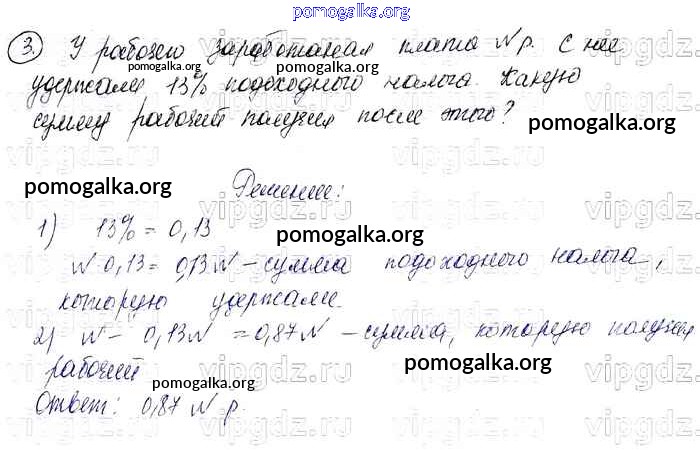 pomogalka.org
3. У рабочего заработаная плата N р. С нее
удержали 13% подоходного налога. Какую
сумму рабочий получил после этого?
Решение:
1) 13% = 0,13
N · 0,13 = 0,13 N - сумма подоходного налога,
которую удержали.
2) N - 0,13N = 0,87N - сумма, которую получил
рабочий
Ответ: 0,87 N р.
pomogalka.org
pomogalka.org
pomogalka.org
pomogalka.org
pomogalka.org
pomogalka.org
pomogalka.org
pomogalka.org
vipgdz.ru